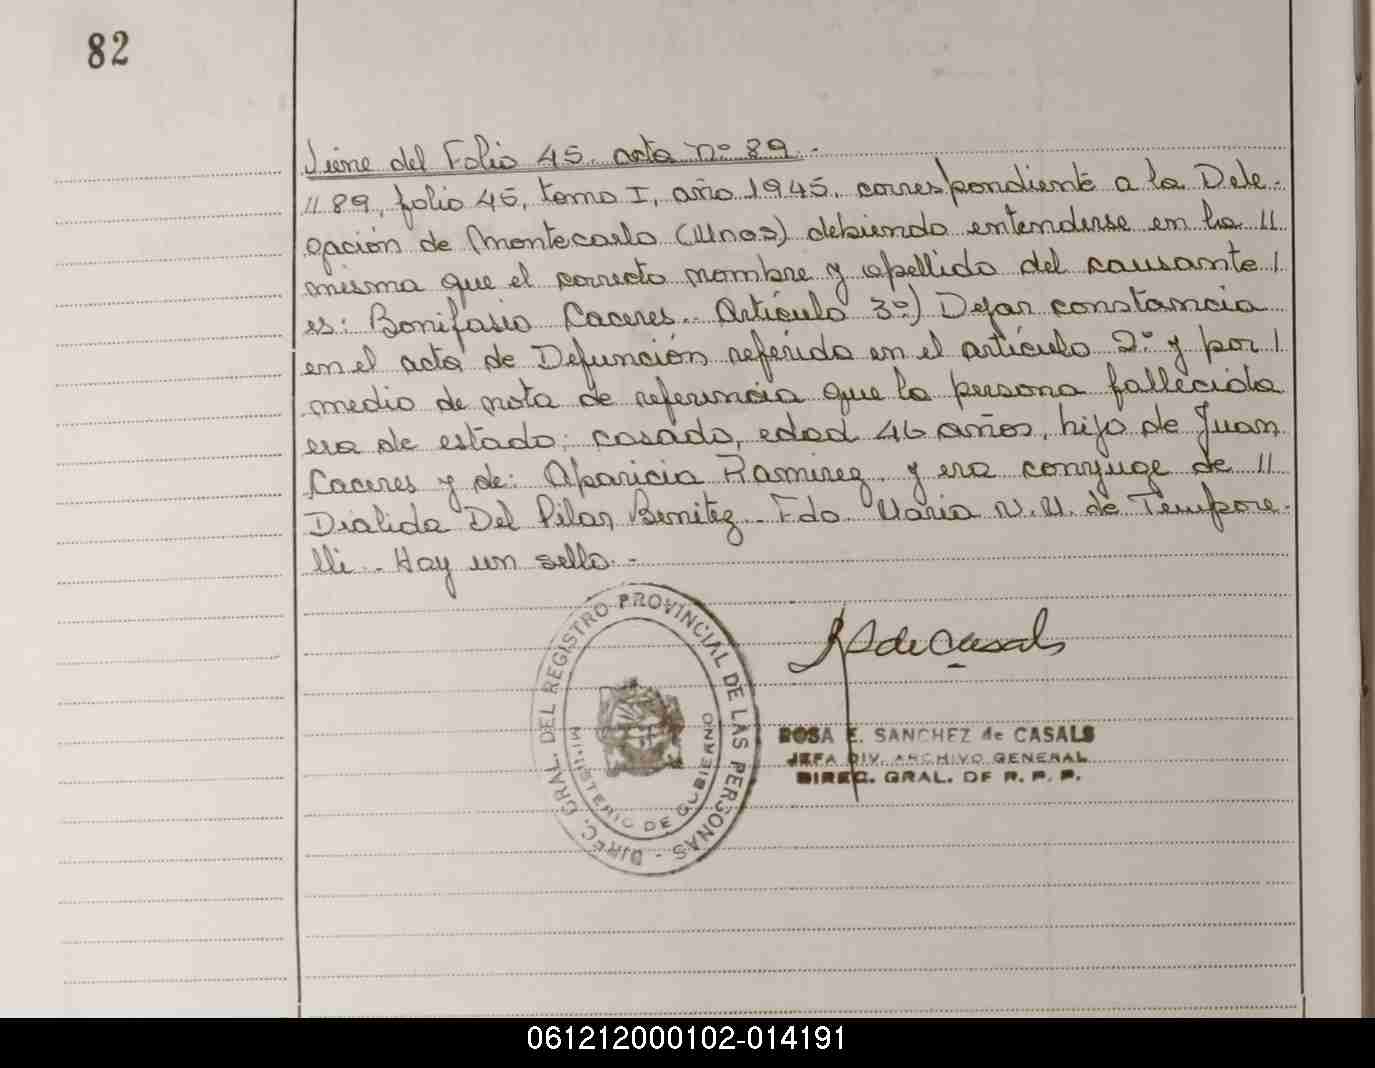 82
Viene del Folio 45. acta nº 89.-
" 89, folio 45, tomo I, año 1945, correspondiente a la Dele-
gación de Montecarlo (Mnes) debiendo entenderse en la //
misma que el correcto nombre y apellido del causante /
es: Bonifasio Caceres. Artículo 3º) Dejar constancia
en el acta de Defunción referida en el artículo 2º y por /
medio de nota de referencia que la persona fallecida
era de estado: casado, edad 46 años, hijo de Juan
Caceres y de: Aparicia Ramirez, y era conyuge de //
Dialida Del Pilar Benitez. Fdo. Maria N. U. de Tempore-
lli. Hay un sello.-
DIREC. GRAL. DEL REGISTRO PROVINCIAL DE LAS PERSONAS -
MINISTERIO DE GOBIERNO
de Casals
ROSA E. SANCHEZ de CASALS
JEFA DIV. ARCHIVO GENERAL
DIREC. GRAL. DE R. P. P.
061212000102-014191